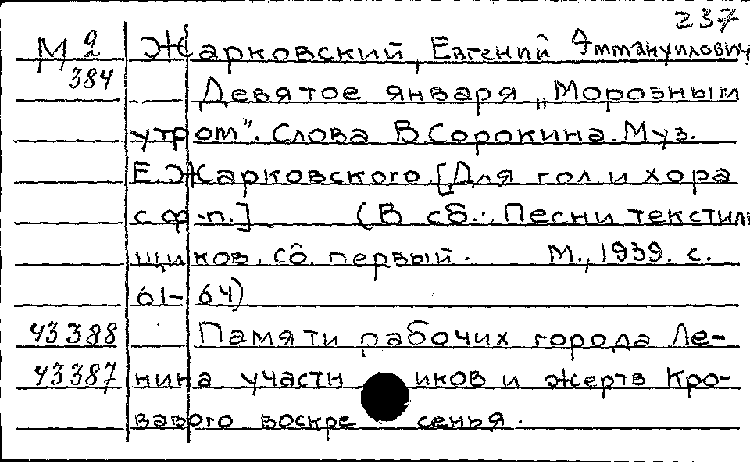 237
М 2 Жарковский, Евгений Эммануилович
384 Девятое января „Морозным
утром". Слова В Сорокина. Муз.
Е. Жарковского. [Для гол. и хора
с ф.-п.] (В сб.: Песни текстиль
щиков. Сб. первый. М., 1939. с.
61-64)
43388 Памяти рабочих города Ле-
43387 нина участников и жертв Кро-
вавого воскресенья.